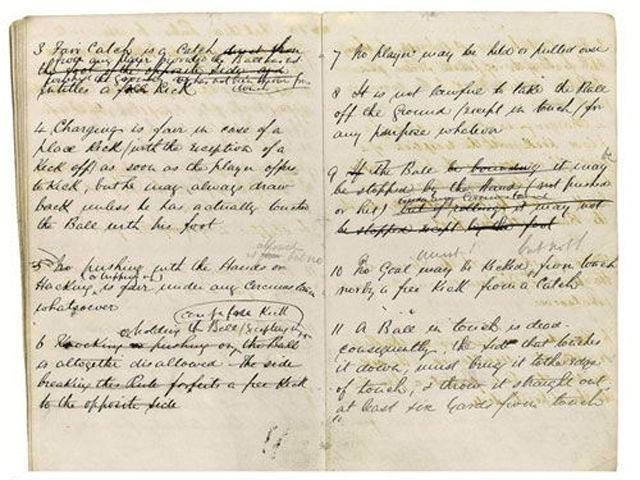 3 Fair Catch is a Catch direct from
from any player provided the Ball has not
the foot of the opposite side and
touched the ground
entitles a free Kick
4 Charging is fair in case of a
place Kick (with the exception of a
Kick off) as soon as the player offers
to Kick, but he may always draw
back unless he has actually touched
the Ball with his foot
5 No pushing with the Hands or
Hacking, is fair under any Circumstances
whatsoever
holding the Ball
6 Knocking or pushing on the Ball
is altogether disallowed The side
breaking this Rule forfeits a free Kick
to the opposite side
7 No player may be held or pulled over
8 It is not lawful to take the Ball
off the Ground (except in touch) for
any purpose whatever
be
9 If the Ball be bounding it may
be stopped by the Hand (not pushed
or hit) but if rolling it may not
be stopped except by the foot
must! but not
10 No Goal may be Kicked from touch
nor by a free Kick from a Catch
11 A Ball in touch is dead
consequently, the side that touches
it down, must bring it to the edge
of touch, & throw it straight out,
at least six yards from touch